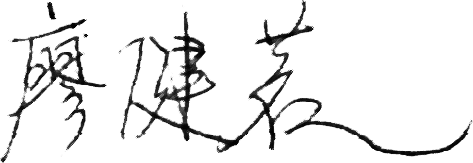 廖健茗